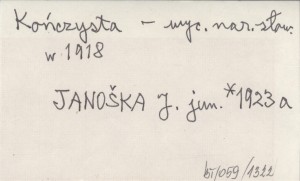 Kończysta – wyc. nar. słow.
w 1918
JANOŠKA J. jun. *1923a
br/059/1322